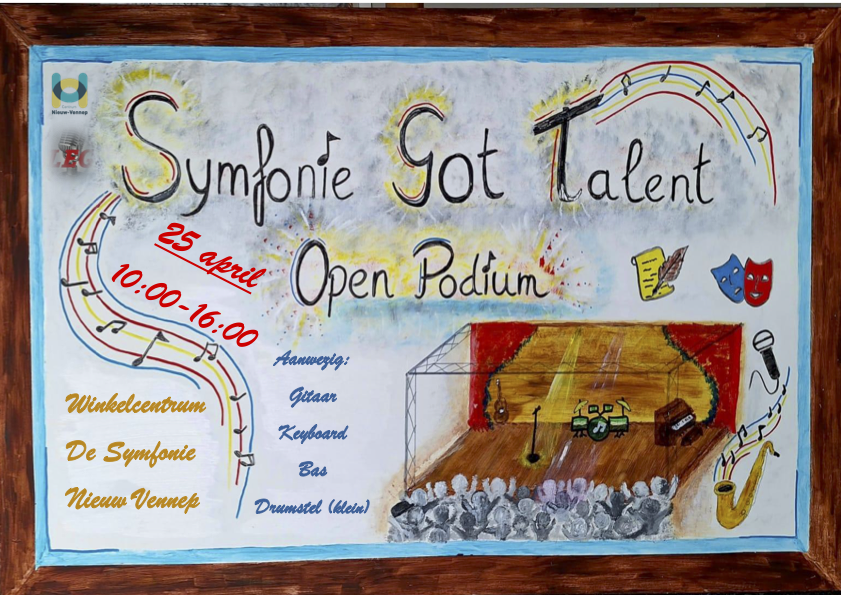 Nieuw-Vennep
Symfonie Got Talent
Open Podium
25 april
10:00-16:00
Winkelcentrum
De Symfonie
Nieuw Vennep
Aanwezig:
Gitaar
Keyboard
Bas
Drumstel (klein)